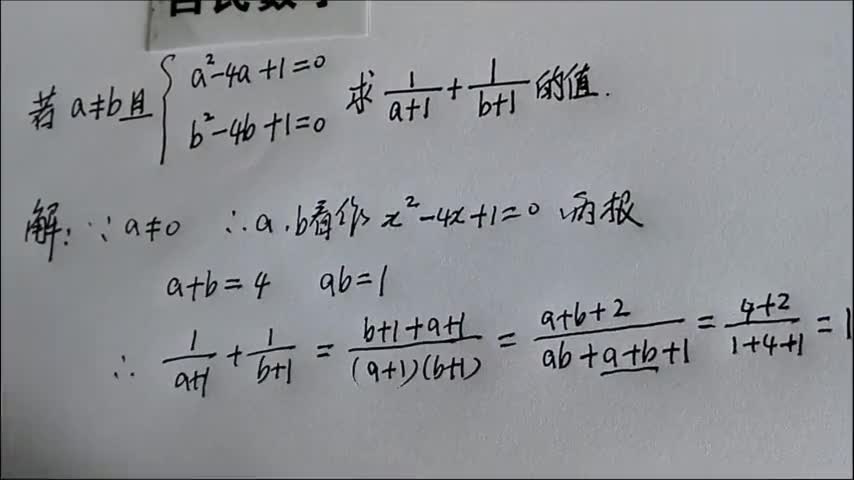 若 a≠b且 { a²-4a+1=0 b²-4b+1=0 求 1/(a+1) + 1/(b+1) 的值.
解: ∵ a≠0 ∴ a.b看作 x²-4x+1=0 两根
a+b=4 ab=1
∴ 1/(a+1) + 1/(b+1) = (b+1+a+1)/((a+1)(b+1)) = (a+b+2)/(ab+a+b+1) = (4+2)/(1+4+1) = 1